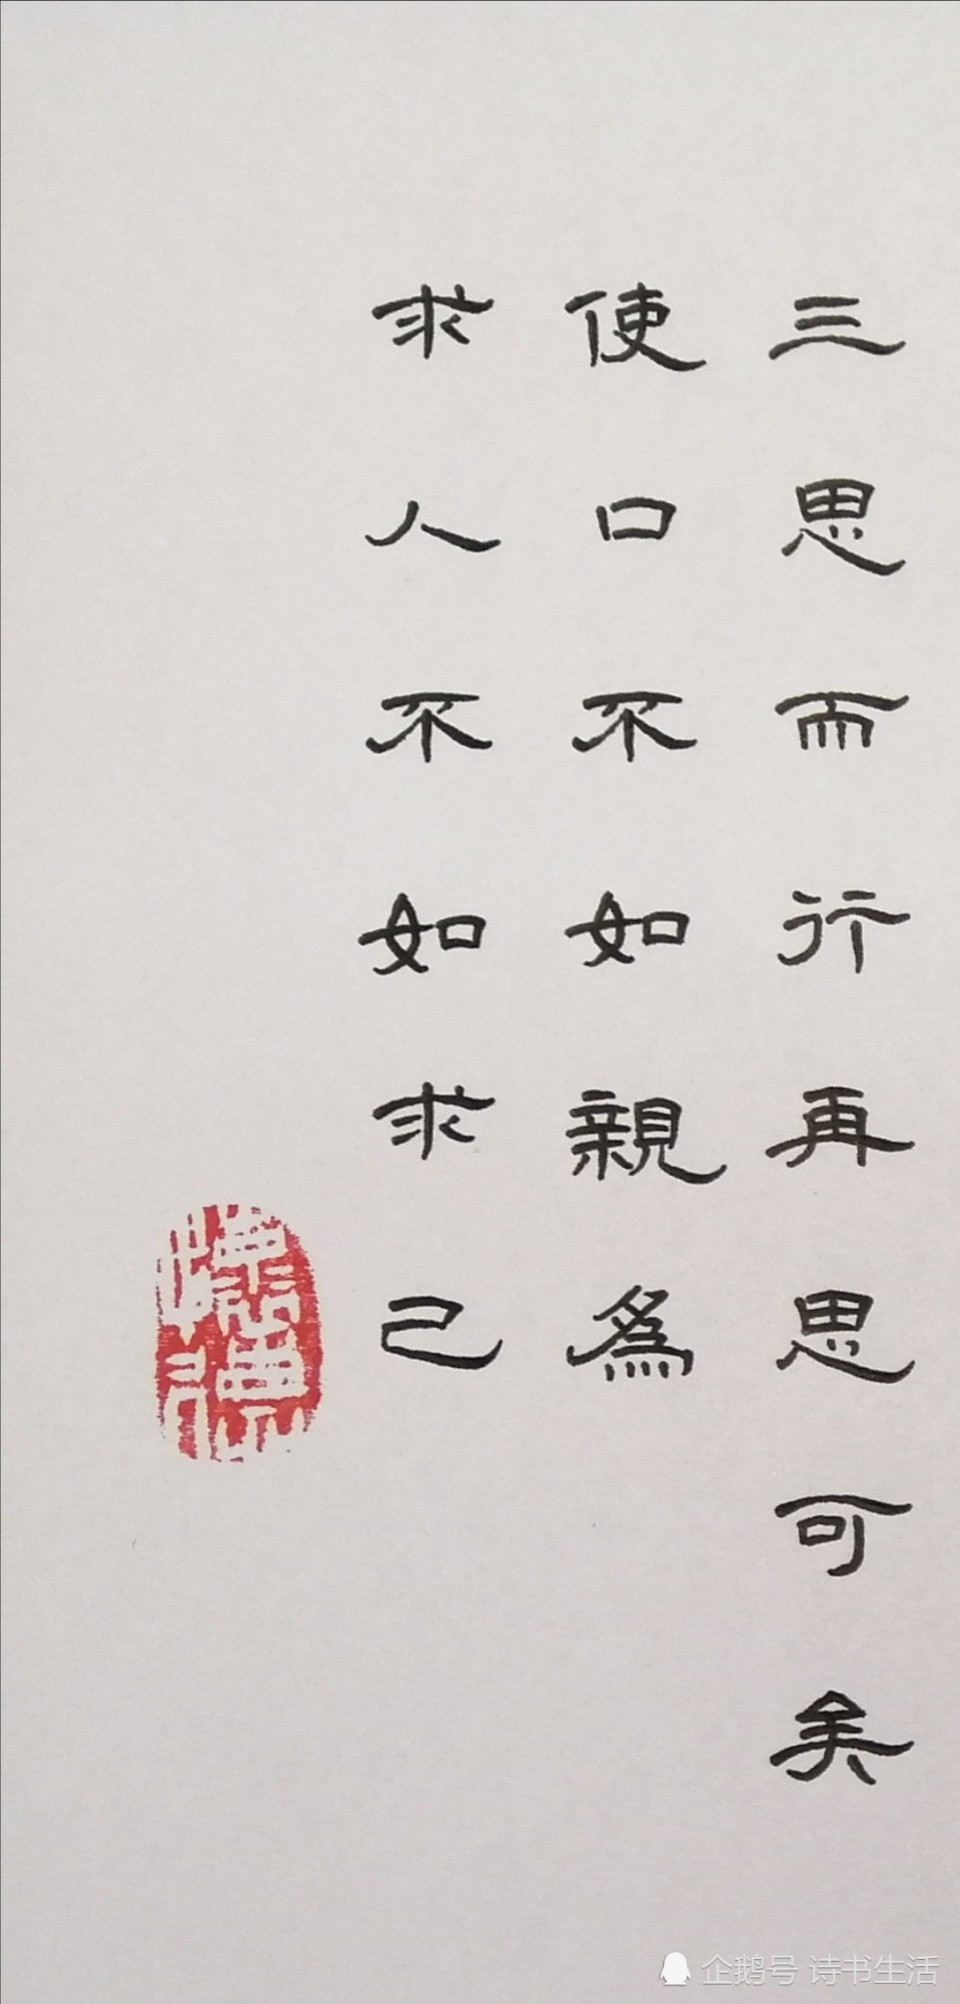 三思而行再思可矣
使口不如親為
求人不如求己
企鹅号 诗书生活